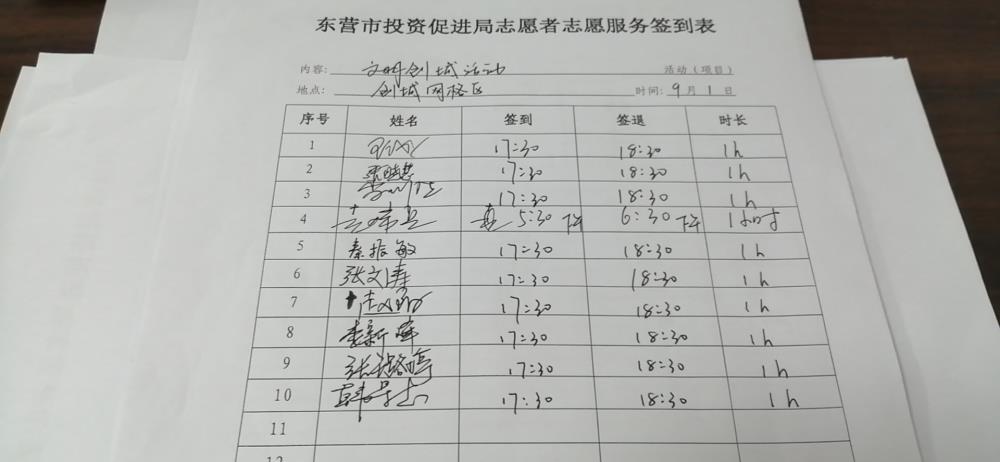 东营市投资促进局志愿者志愿服务签到表
内容: 文明创城活动 活动(项目)
地点: 创城网格区 时间: 9月1日
序号 姓名 签到 签退 时长
1 17:30 18:30 1h
2 张晓慧 17:30 18:30 1h
3 17:30 18:30 1h
4 5:30 下午 6:30 下午 1小时
5 秦振敏 17:30 18:30 1h
6 张文涛 17:30 18:30 1h
7 17:30 18:30 1h
8 李新萍 17:30 18:30 1h
9 张璐婷 17:30 18:30 1h
10 17:30 18:30 1h
11
12